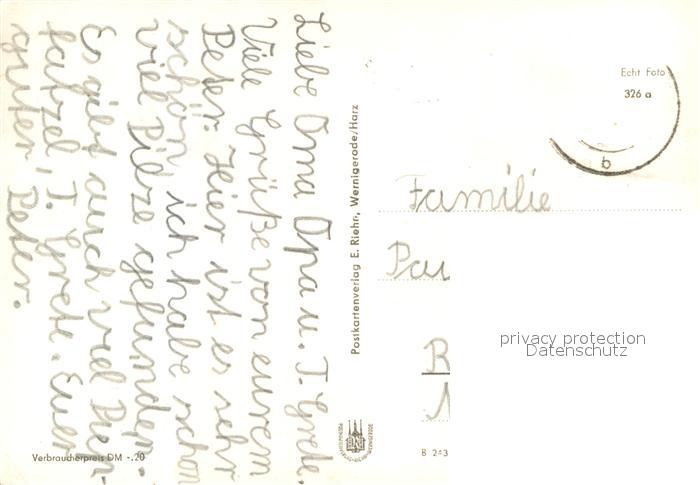 Liebe Oma Opa u. T. Grete.
Viele Grüße von eurem
Peter. Hier ist es sehr
schön, ich habe schon
viel Pilze gefunden.
Es gibt auch viel
T. Grete. Euer
guter, Peter.
Verbraucherpreis DM -.20
Postkartenverlag E. Riehn, Wernigerode/Harz
Echt Foto
326 a
b
Familie
Pau
R
privacy protection
Datenschutz
B 243